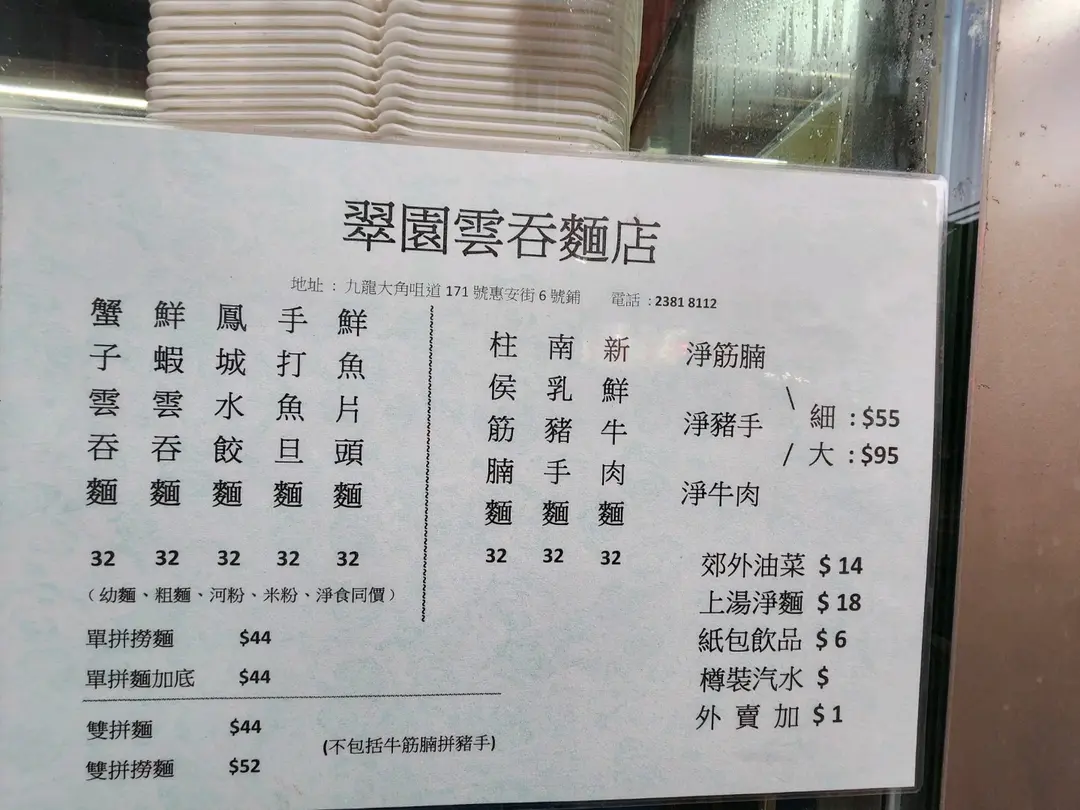 翠園雲吞麵店
地址 : 九龍大角咀道 171 號惠安街 6 號鋪 電話 : 2381 8112
蟹子雲吞麵 32
鮮蝦雲吞麵 32
鳳城水餃麵 32
手打魚旦麵 32
鮮魚片頭麵 32
(幼麵、粗麵、河粉、米粉、淨食同價)
單拼撈麵 $44
單拼麵加底 $44
雙拼麵 $44
雙拼撈麵 $52
(不包括牛筋腩拼豬手)
柱侯筋腩麵 32
南乳豬手麵 32
新鮮牛肉麵 32
淨筋腩
淨豬手
淨牛肉
\ 細 : $55
/ 大 : $95
郊外油菜 $ 14
上湯淨麵 $ 18
紙包飲品 $ 6
樽裝汽水 $
外賣加 $ 1